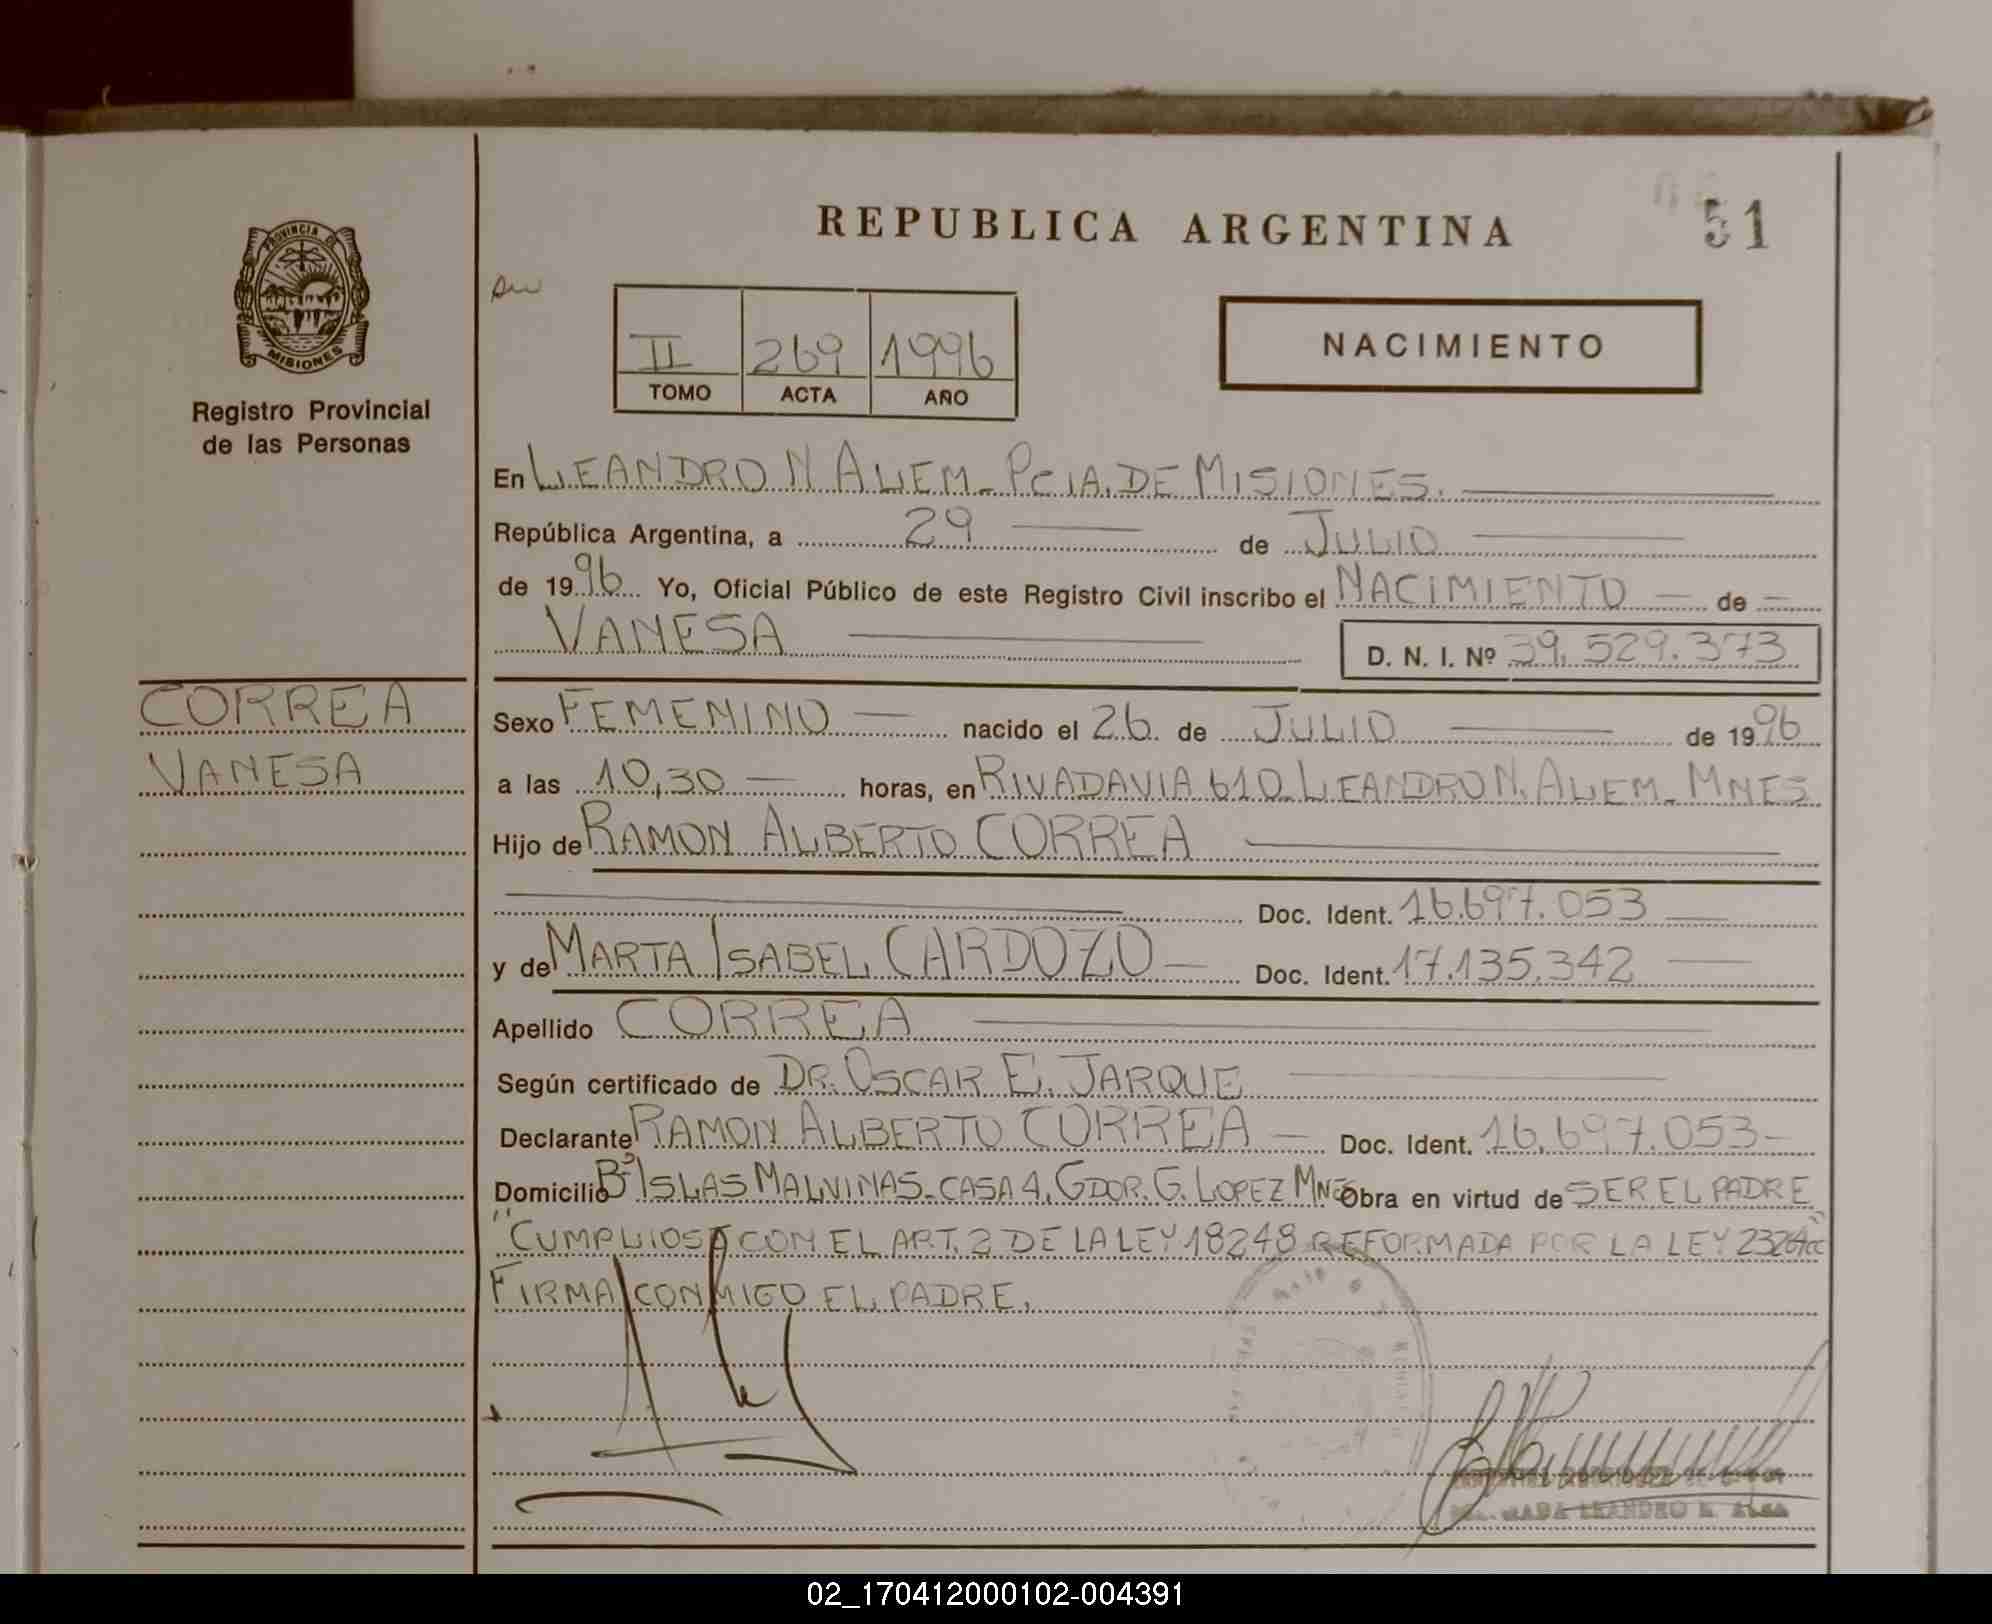 REPUBLICA ARGENTINA
51
PROVINCIA DE
MISIONES
Registro Provincial
de las Personas
II 269 1996
TOMO ACTA AÑO
NACIMIENTO
En LEANDRO N ALEM_ PCIA. DE MISIONES.
República Argentina, a 29 de JULIO
de 1996 Yo, Oficial Público de este Registro Civil inscribo el NACIMIENTO de
VANESA D. N. I. Nº 39.529.373
CORREA
VANESA
Sexo FEMENINO nacido el 26 de JULIO de 1996
a las 10,30 horas, en RIVADAVIA 610_LEANDRO N. ALEM_MNES
Hijo de RAMON ALBERTO CORREA
Doc. Ident. 16.697.053
y de MARTA ISABEL CARDOZO Doc. Ident. 17.135.342
Apellido CORREA
Según certificado de DR. OSCAR E. JARQUE
Declarante RAMON ALBERTO CORREA Doc. Ident. 16.697.053
Domicilio Bº ISLAS MALVINAS_CASA 4. GDOR. G. LOPEZ MNES Obra en virtud de SER EL PADRE
"CUMPLIOSE CON EL ART. 2 DE LA LEY 18248 REFORMADA POR LA LEY 23264"
FIRMA CONMIGO EL PADRE.
LEANDRO N. ALEM
02_170412000102-004391